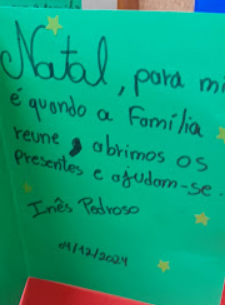 Natal, para mi
é quando a Família
reune, abrimos os
presentes e ajudam-se.
Inês Pedroso
04/12/2024